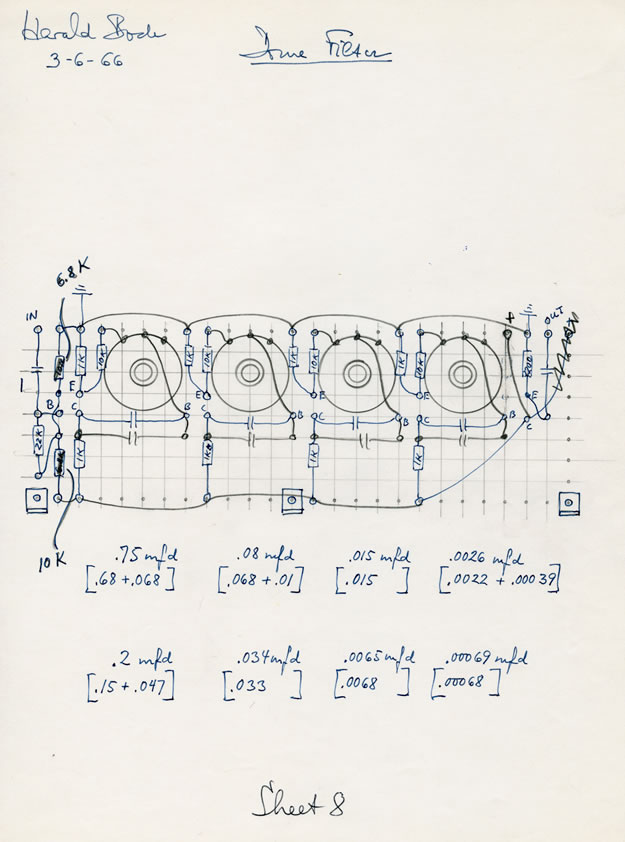 Harald Bode
3-6-66
Tone Filter
6.8K
IN
OUT
+
1
1K
10K
1K
10K
1K
10K
1K
10K
E
E
E
E
E
B
C
B
C
B
C
B
C
B
C
22K
1K
1K
1K
1K
10K
.75 mfd
[.68 + .068]
.08 mfd
[.068 + .01]
.015 mfd
[.015]
.0026 mfd
[.0022 + .00039]
.2 mfd
[.15 + .047]
.034 mfd
[.033]
.0065 mfd
[.0068]
.00069 mfd
[.00068]
Sheet 8